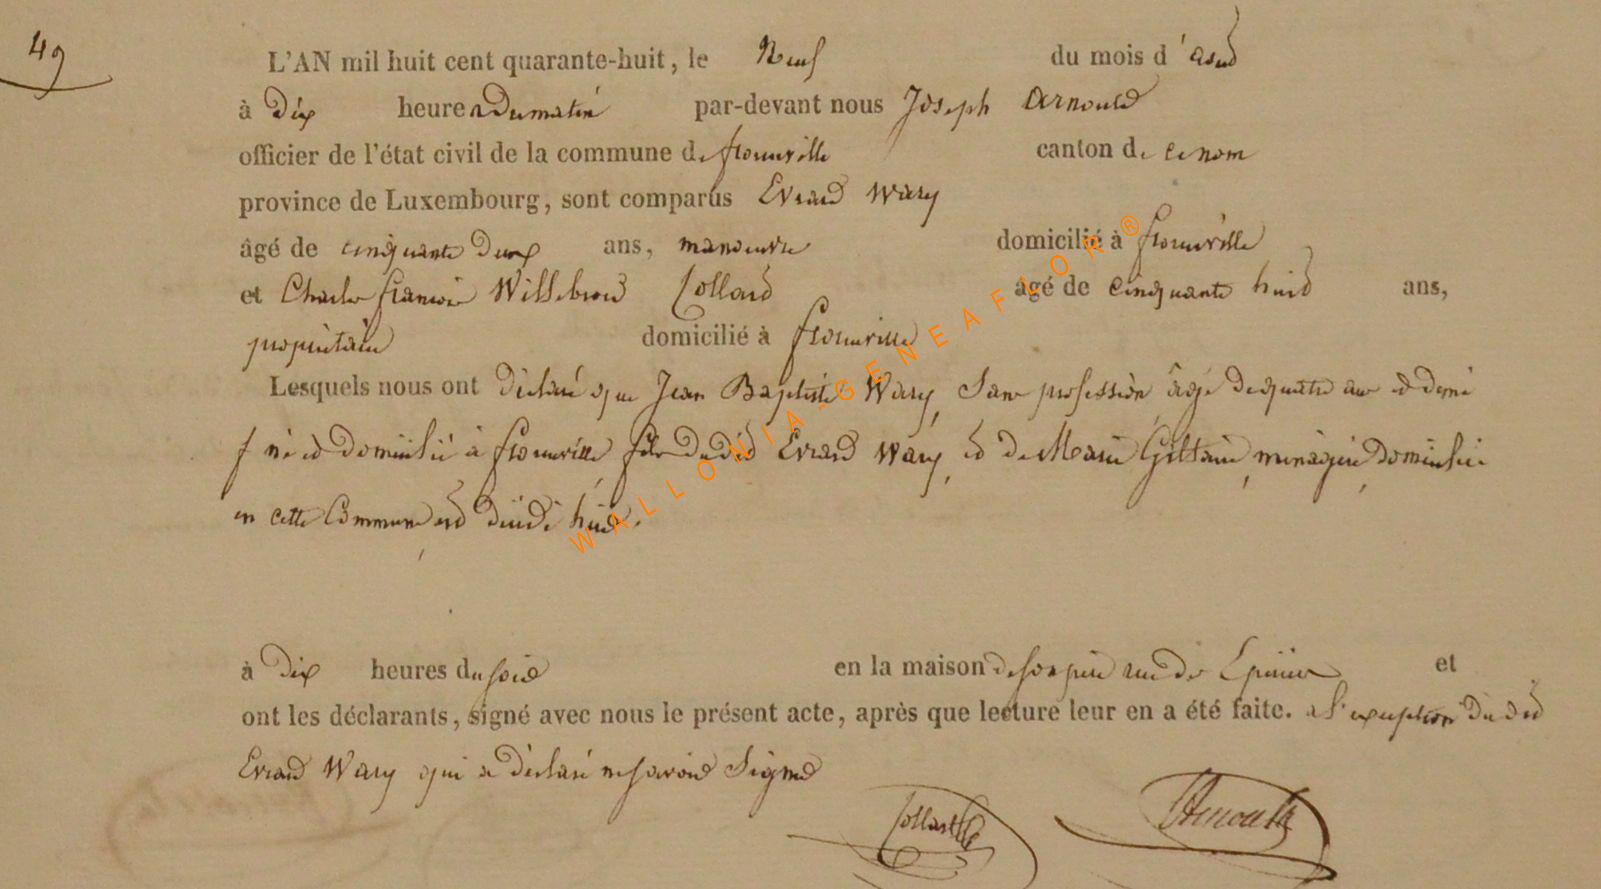 49
L'AN mil huit cent quarante-huit, le Neuf du mois d'août
à Dix heures Du matin par-devant nous Joseph Arnould
officier de l'état civil de la commune de florenville canton de ce nom
province de Luxembourg, sont comparus Evrard Wary
âgé de cinquante Deux ans, manoeuvre domicilié à florenville
et Charles françois Willebrord Collard âgé de cinquante huit ans,
propriétaire domicilié à florenville
Lesquels nous ont Déclaré que Jean Baptiste Wary, Sans profession, âgé de quatre ans et demi
né et Domicilié à florenville, fils Du dit Evrard Wary, et de Marie Giltaire, ménagère, Domiciliée
en cette Commune, est décédé hier.
à Dix heures du soir en la maison de son père rue des Epiniers et
ont les déclarants, signé avec nous le présent acte, après que lecture leur en a été faite. a l'exception Du dit
Evrard Wary qui a déclaré ne savoir Signer
Collard
Arnould
WALLONIA-GENEAFLOR®